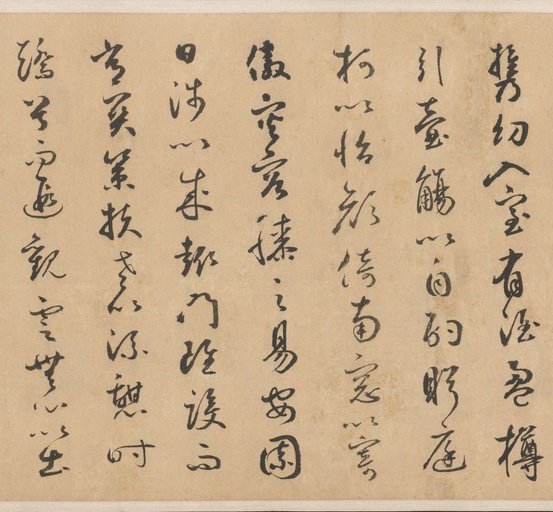 携幼入室有酒盈樽
引壺觴以自酌眄庭
柯以怡顏倚南窓以寄
傲審容膝之易安園
日涉以成趣門雖設而
常關策扶老以流憩時
矯首而遐觀雲無心以出